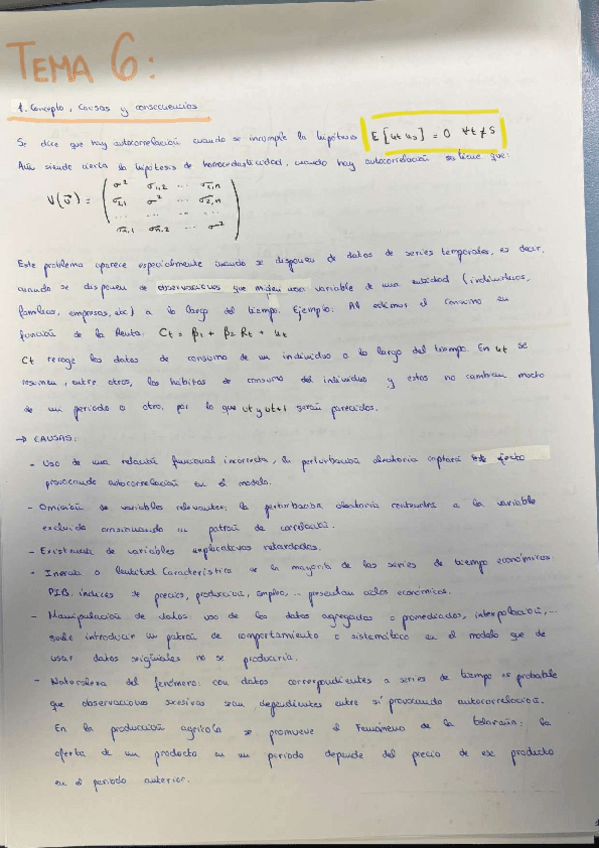 TEMA 6:
1. Concepto, causas y consecuencias
Se dice que hay autocorrelación cuando se incumple la hipótesis E[ut us] = 0 ∀t ≠ s
Aún siendo cierta la hipótesis de homocedasticidad, cuando hay autocorrelación se tiene que:
V(u⃗) = ( σ² σ1,2 ... σ1,n
σ2,1 σ² ... σ2,n
... ... ... ...
σn,1 σn,2 ... σ² )
Este problema aparece especialmente cuando se disponen de datos de series temporales, es decir,
cuando se disponen de observaciones que miden una variable de una entidad (individuos,
familias, empresas, etc) a lo largo del tiempo. Ejemplo: Al estimar el consumo en
función de la Renta: Ct = β1 + β2 Rt + ut
Ct recoge los datos de consumo de un individuo a lo largo del tiempo. En ut se
resumen, entre otros, los hábitos de consumo del individuo y estos no cambian mucho
de un periodo a otro, por lo que ut y ut+1 serán parecidos.
→ CAUSAS:
- Uso de una relación funcional incorrecta, la perturbación aleatoria captará este efecto
provocando autocorrelación en el modelo.
- Omisión de variables relevantes: la perturbación aleatoria contendrá a la variable
excluida ocasionando un patrón de correlación.
- Existencia de variables explicativas retardadas.
- Inercia o lentitud característica de la mayoría de las series de tiempo económicas.
PIB, índices de precios, producción, empleo, ... presentan ciclos económicos.
- Manipulación de datos: uso de los datos agregados o promediados, interpolación, ...
suele introducir un patrón de comportamiento o sistemático en el modelo que de
usar datos originales no se produciría.
- Naturaleza del fenómeno: con datos correspondientes a series de tiempo es probable
que observaciones sucesivas sean dependientes entre sí provocando autocorrelación.
En la producción agrícola se promueve el Fenómeno de la telaraña: la
oferta de un producto en un periodo depende del precio de ese producto
en el periodo anterior.